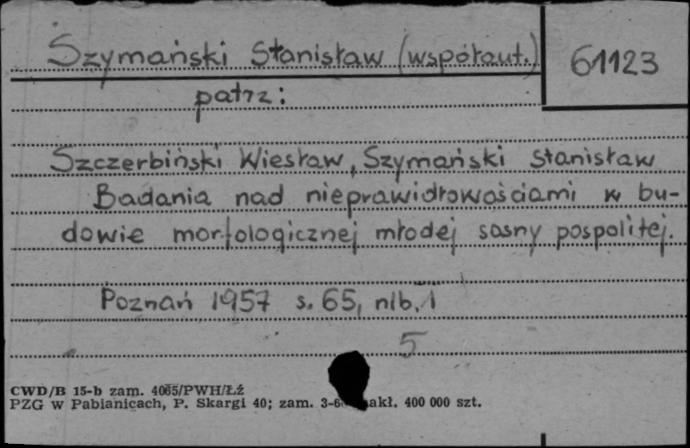 Szymański Stanisław (współaut.)
61123
patrz:
Szczerbiński Wiesław, Szymański Stanisław
Badania nad nieprawidłowościami w bu-
dowie morfologicznej młodej sosny pospolitej.
Poznań 1957 s. 65, nlb. 1
5
CWD/B 15-b zam. 4065/PWH/Łź
PZG w Pabianicach, P. Skargi 40; zam. nakł. 400 000 szt.